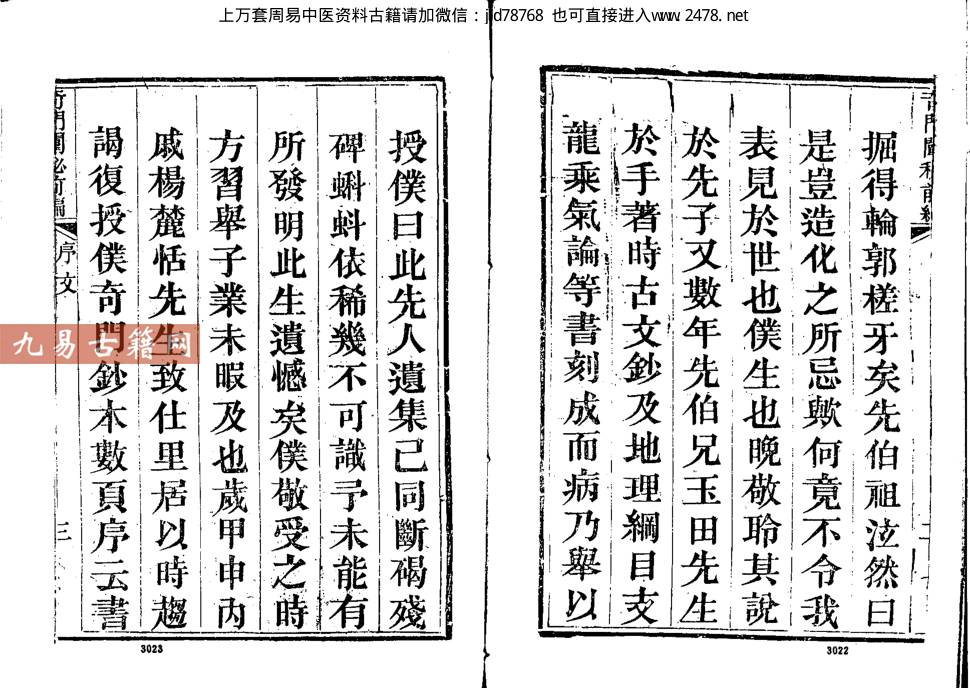 上万套周易中医资料古籍请加微信：jd78768 也可直接进入www.2478.net
掘得輪郭槎牙矣先伯祖泫然曰
是豈造化之所忌歟何竟不令我
表見於世也僕生也晚敬聆其說
於先子又數年先伯兄玉田先生
於手著時古文鈔及地理綱目支
龍乘氣論等書刻成而病乃舉以
3022
授僕曰此先人遺集已同斷碣殘
碑蝌蚪依稀幾不可識予未能有
所發明此生遺憾矣僕敬受之時
方習舉子業未暇及也歲甲申內
戚楊麓恬先生致仕里居以時趨
謁復授僕奇門鈔本數頁序云書
奇門闡秘前編
序文
三
3023
九易古籍网